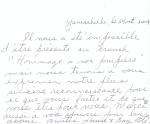 Yamachiche le
Il nous a été impossible
d'être présents au brunch
"Hommage à nos pompiers"
mais nous tenons à vous
exprimer notre plus
sincère reconnaissance pour
ce que vous faites et ce que
vous êtes pour nous. Merci
aussi à vos épouses pour leur